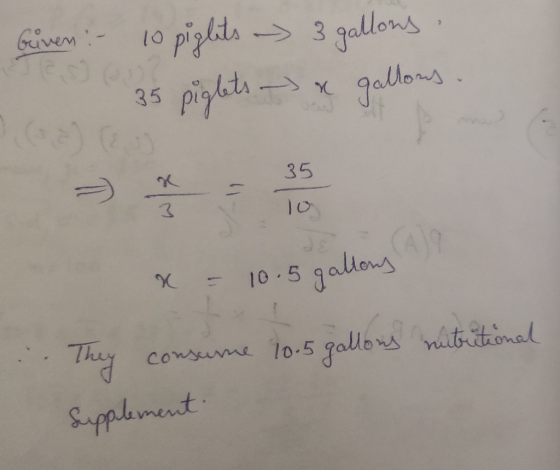 Given:- 10 piglets → 3 gallons.
35 piglets → x gallons.
⇒ x/3 = 35/10
x = 10.5 gallons
∴ They consume 10.5 gallons nutritional
Supplement.